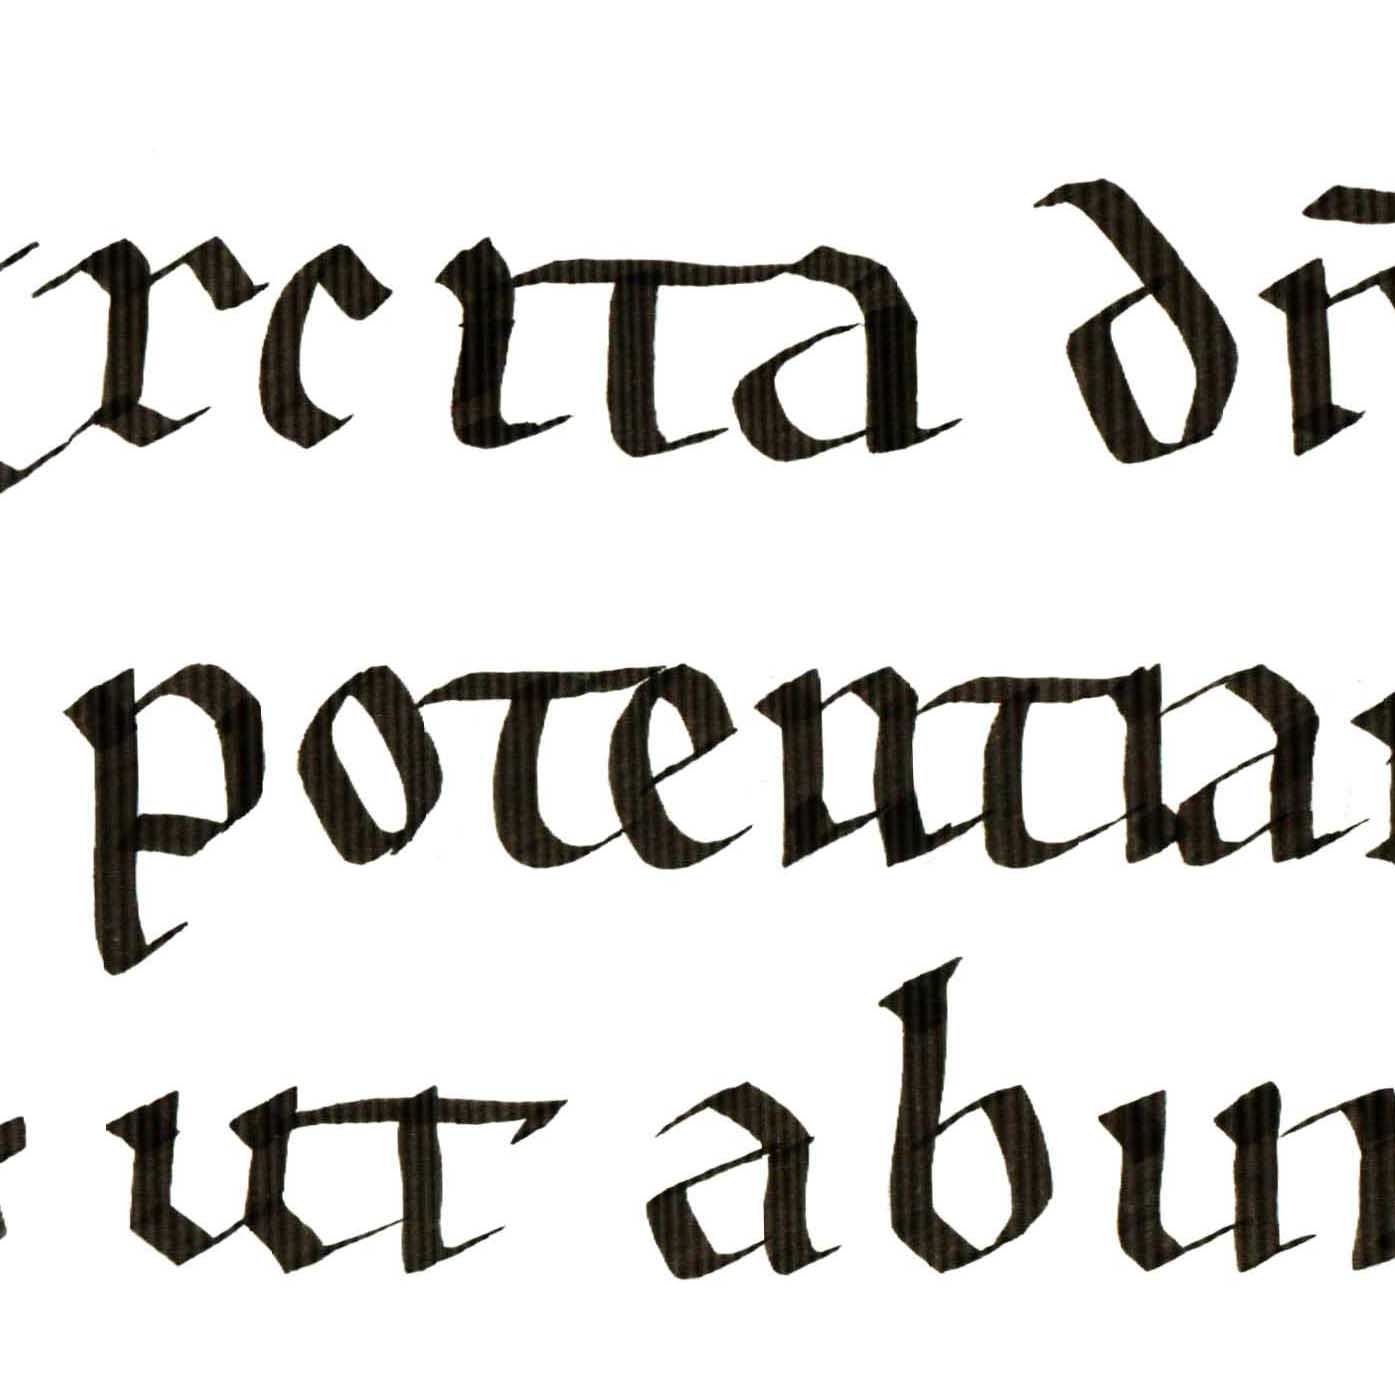 xcita dn̄
potentia
ut abun